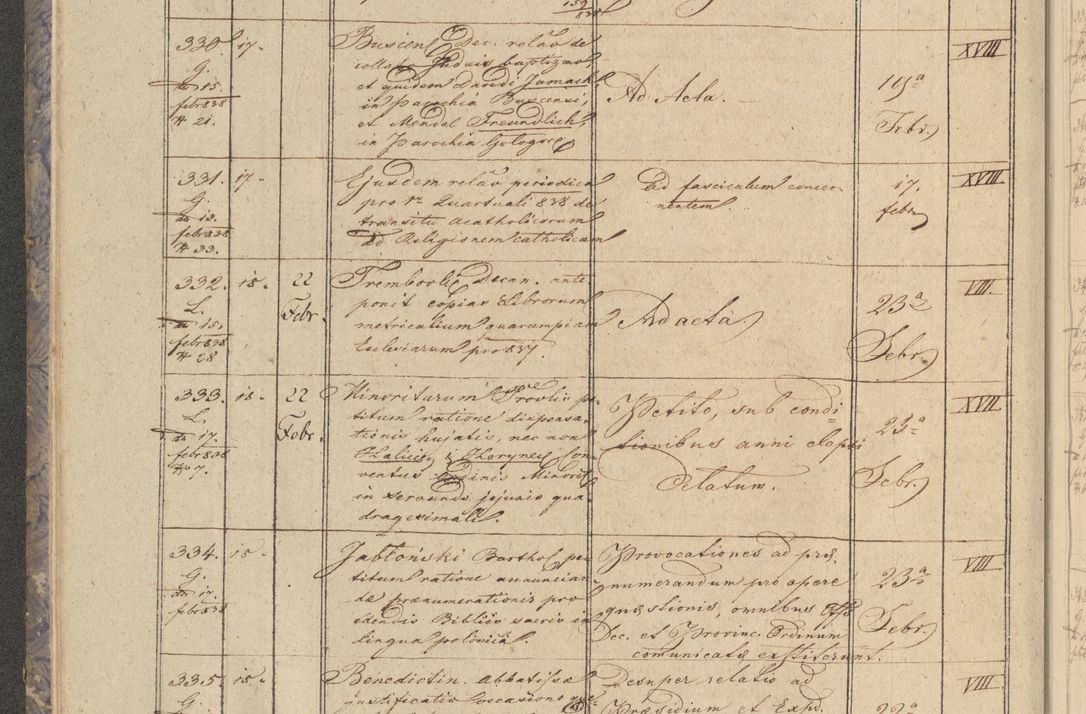 139/838
330. 17.
G.
dd 15.
febr 838
# 21.
Buscen. Dec. relāō de
collato Judaeis baptizmo,
et quidem Davidi Jamach
in Parochia Buscensi,
et Mendel Freundlich,
in Parochia Gologor.
Ad Acta.
19ª
Febr.
XVIII
331. 17.
G.
dd 13.
febr 838
# 33.
Ejusdem relāō periodica
pro 1º Quartuali 838 de
transitu Acatholicorum
ad Religionem Catholicam
Ad fasciculum concer
nentem.
17.
febr.
XVIII
332. 18. 22
L. Febr.
dd 15.
febr 838
# 28
Trembovlic. Decan. ante
ponit copias Librorum
metricalium quarumpiam
Ecclesiarum pro 837.
Ad acta.
23ª
Febr.
VIII.
333. 18. 22
L. Febr.
dd 17.
febr 838
# 7.
Minoritarum Provlis pe
titum ratione dispensa
tionis hujatis, nec non
Haliciens. & Horyney. Con
ventus Ordinis Minorit.
in servando jejunio qua
dragesimali.
Petito, sub condi
tionibus anni elapsi
Delatum.
23ª
Febr.
XVII
334. 18.
G.
dd 17.
febr 838
Jabłoński Barthol. pe
titum ratione annuncian
dae praenumerationis pro
edendis Bibliis sacris in
lingua polonica.
Provocationes ad prae
numerandum pro opere
quaestionis, omnibus Offo
Dec. et Provinc. Ordinum
comunicatae exstiterunt.
23ª
Febr.
VIII
335. 18.
G.
Benedictin. abbatissa
justificatio occasione
Desuper relatio ad
Praesidium et Exped.
22ª
VIII.